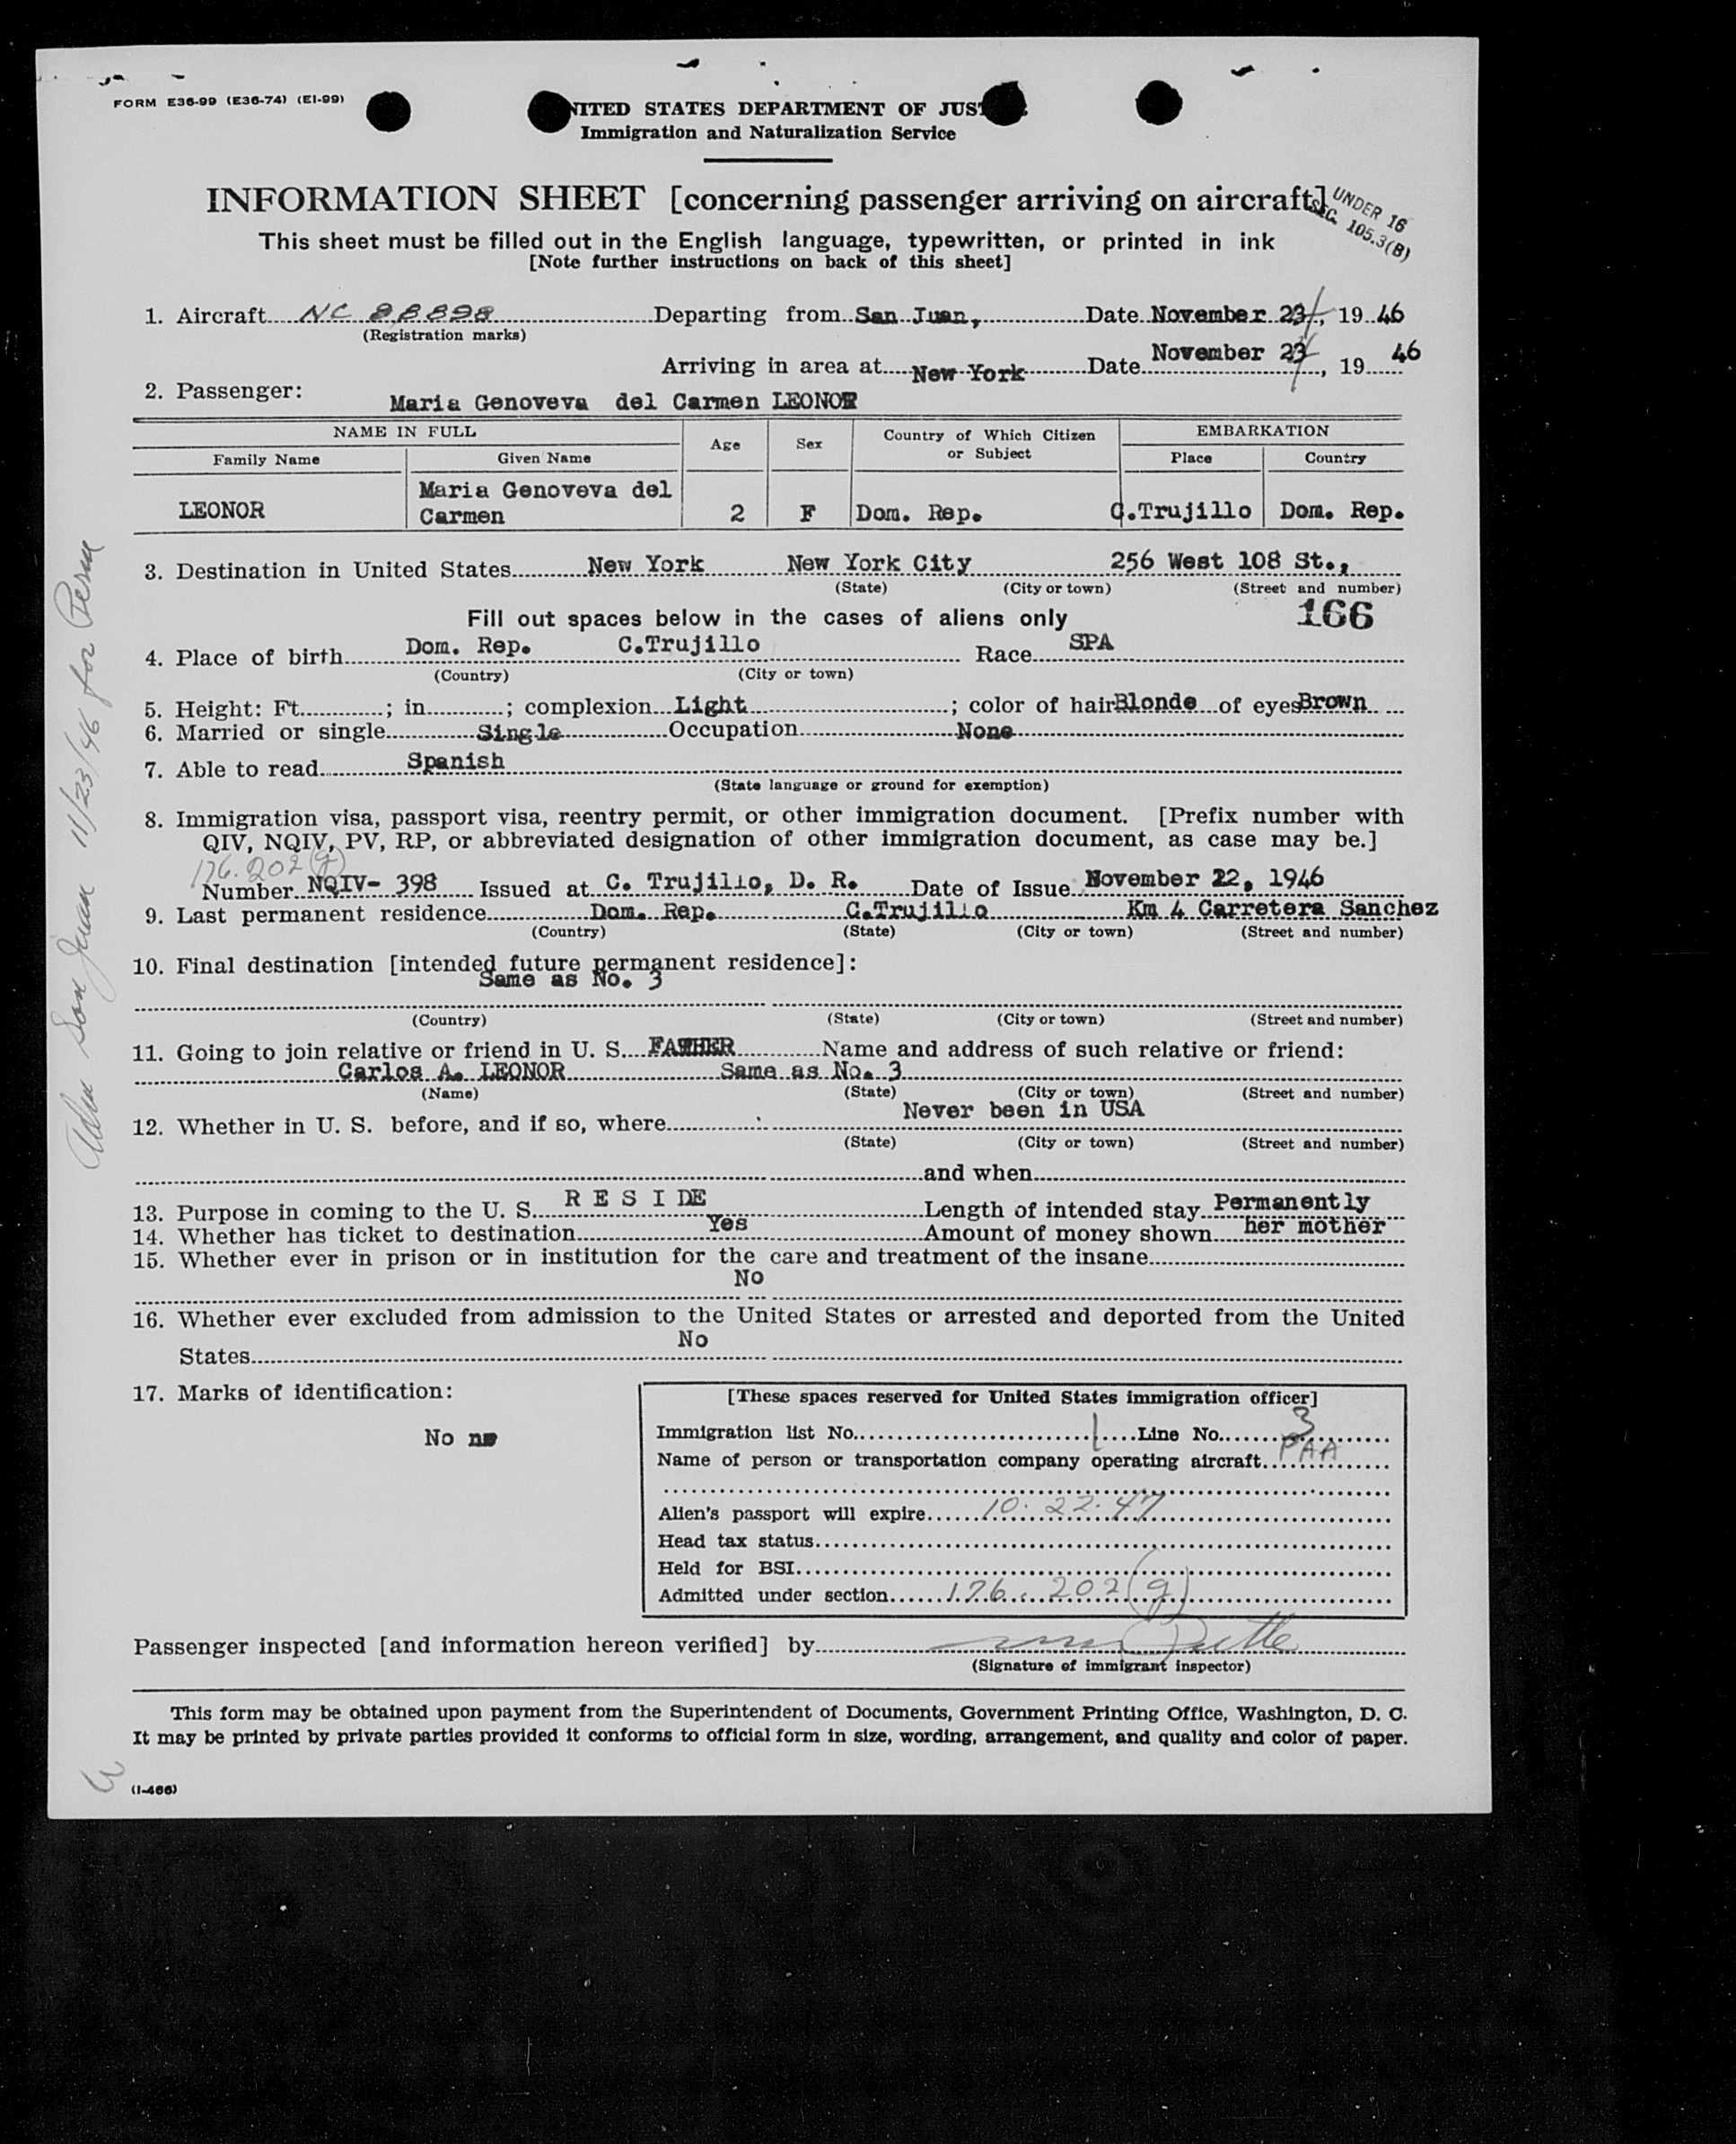 FORM E36-99 (E36-74) (EI-99)
UNITED STATES DEPARTMENT OF JUST
Immigration and Naturalization Service
INFORMATION SHEET [concerning passenger arriving on aircraft]
UNDER 16
SEC. 105.3(B)
This sheet must be filled out in the English language, typewritten, or printed in ink
[Note further instructions on back of this sheet]
1. Aircraft NC 88898 Departing from San Juan, Date November 23, 19 46
(Registration marks)
Arriving in area at New York Date November 23, 19 46
2. Passenger: Maria Genoveva del Carmen LEONOR
NAME IN FULL Age Sex Country of Which Citizen or Subject EMBARKATION
Family Name Given Name Place Country
LEONOR Maria Genoveva del Carmen 2 F Dom. Rep. C.Trujillo Dom. Rep.
3. Destination in United States New York New York City 256 West 108 St.,
(State) (City or town) (Street and number)
Fill out spaces below in the cases of aliens only 166
4. Place of birth Dom. Rep. C.Trujillo Race SPA
(Country) (City or town)
5. Height: Ft. ; in. ; complexion Light ; color of hair Blonde of eyes Brown
6. Married or single Single Occupation None
7. Able to read Spanish
(State language or ground for exemption)
8. Immigration visa, passport visa, reentry permit, or other immigration document. [Prefix number with
QIV, NQIV, PV, RP, or abbreviated designation of other immigration document, as case may be.]
176.202(g)
Number NQIV- 398 Issued at C. Trujillo, D. R. Date of Issue November 22, 1946
9. Last permanent residence Dom. Rep. C.Trujillo Km 4 Carretera Sanchez
(Country) (State) (City or town) (Street and number)
10. Final destination [intended future permanent residence]:
Same as No. 3
(Country) (State) (City or town) (Street and number)
11. Going to join relative or friend in U. S. FATHER Name and address of such relative or friend:
Carlos A. LEONOR Same as No. 3
(Name) (State) (City or town) (Street and number)
12. Whether in U. S. before, and if so, where Never been in USA
(State) (City or town) (Street and number)
and when
13. Purpose in coming to the U. S. R E S I DE Length of intended stay Permanently
14. Whether has ticket to destination Yes Amount of money shown her mother
15. Whether ever in prison or in institution for the care and treatment of the insane
No
16. Whether ever excluded from admission to the United States or arrested and deported from the United
States No
17. Marks of identification:
No ne
[These spaces reserved for United States immigration officer]
Immigration list No. 1 Line No. 3
Name of person or transportation company operating aircraft PAA
Alien's passport will expire 10.22.47
Head tax status
Held for BSI
Admitted under section 176.202(g)
Passenger inspected [and information hereon verified] by
(Signature of immigrant inspector)
This form may be obtained upon payment from the Superintendent of Documents, Government Printing Office, Washington, D. C.
It may be printed by private parties provided it conforms to official form in size, wording, arrangement, and quality and color of paper.
(I-466)
Adm San Juan 11/23/46 for Perm